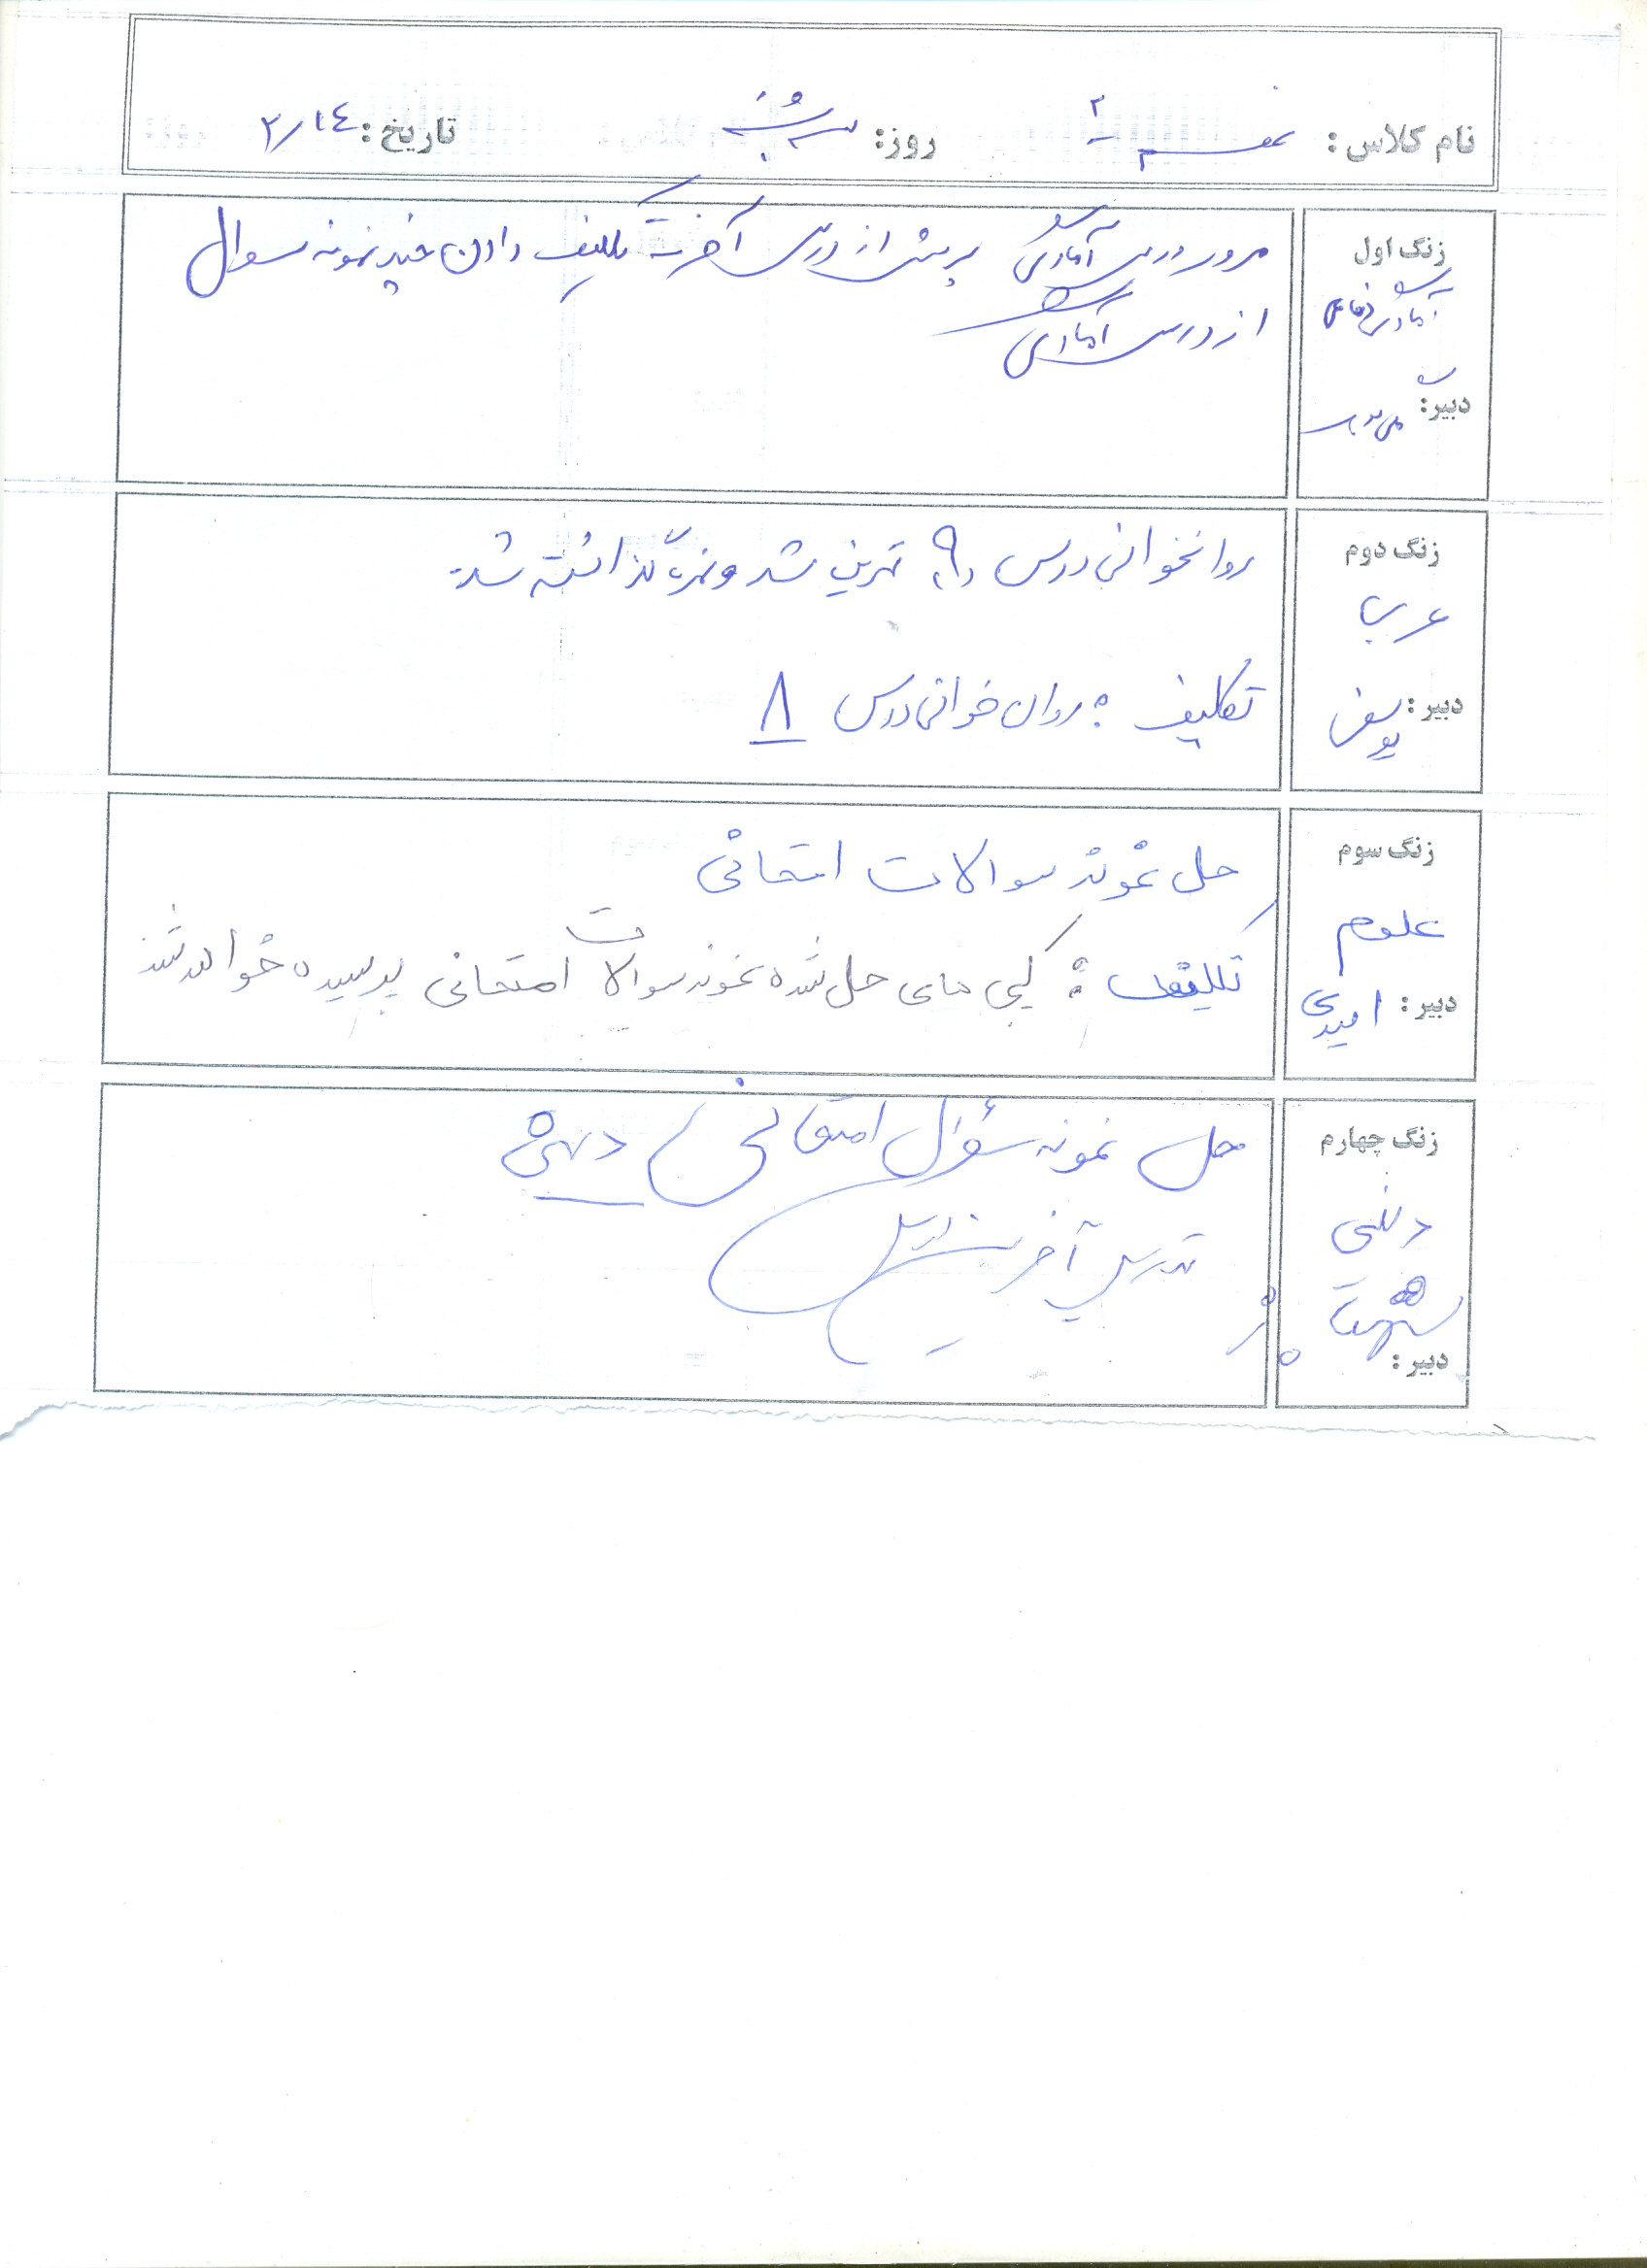 نام کلاس: نهم ۲ روز: سه شنبه تاریخ: ۲/۱۴
زنگ اول
آمادگی دفاعی
دبیر:
مرور درس آمادگی پرسش از درس آخر تکلیف دادن چند نمونه سوال
از درس آمادگی
زنگ دوم
عربی
دبیر:
روانخوانی درس ۹ تمرین شد و نمره گذاشته شد.
تکلیف: روان خوانی درس ۸
زنگ سوم
علوم
دبیر: امیدی
حل نمونه سوالات امتحانی
تکلیف: کپی های حل شده نمونه سوالات امتحانی پرسیده خواهد شد
زنگ چهارم
دینی
دبیر:
حل نمونه سؤال امتحانی
تدریس آخرین درس